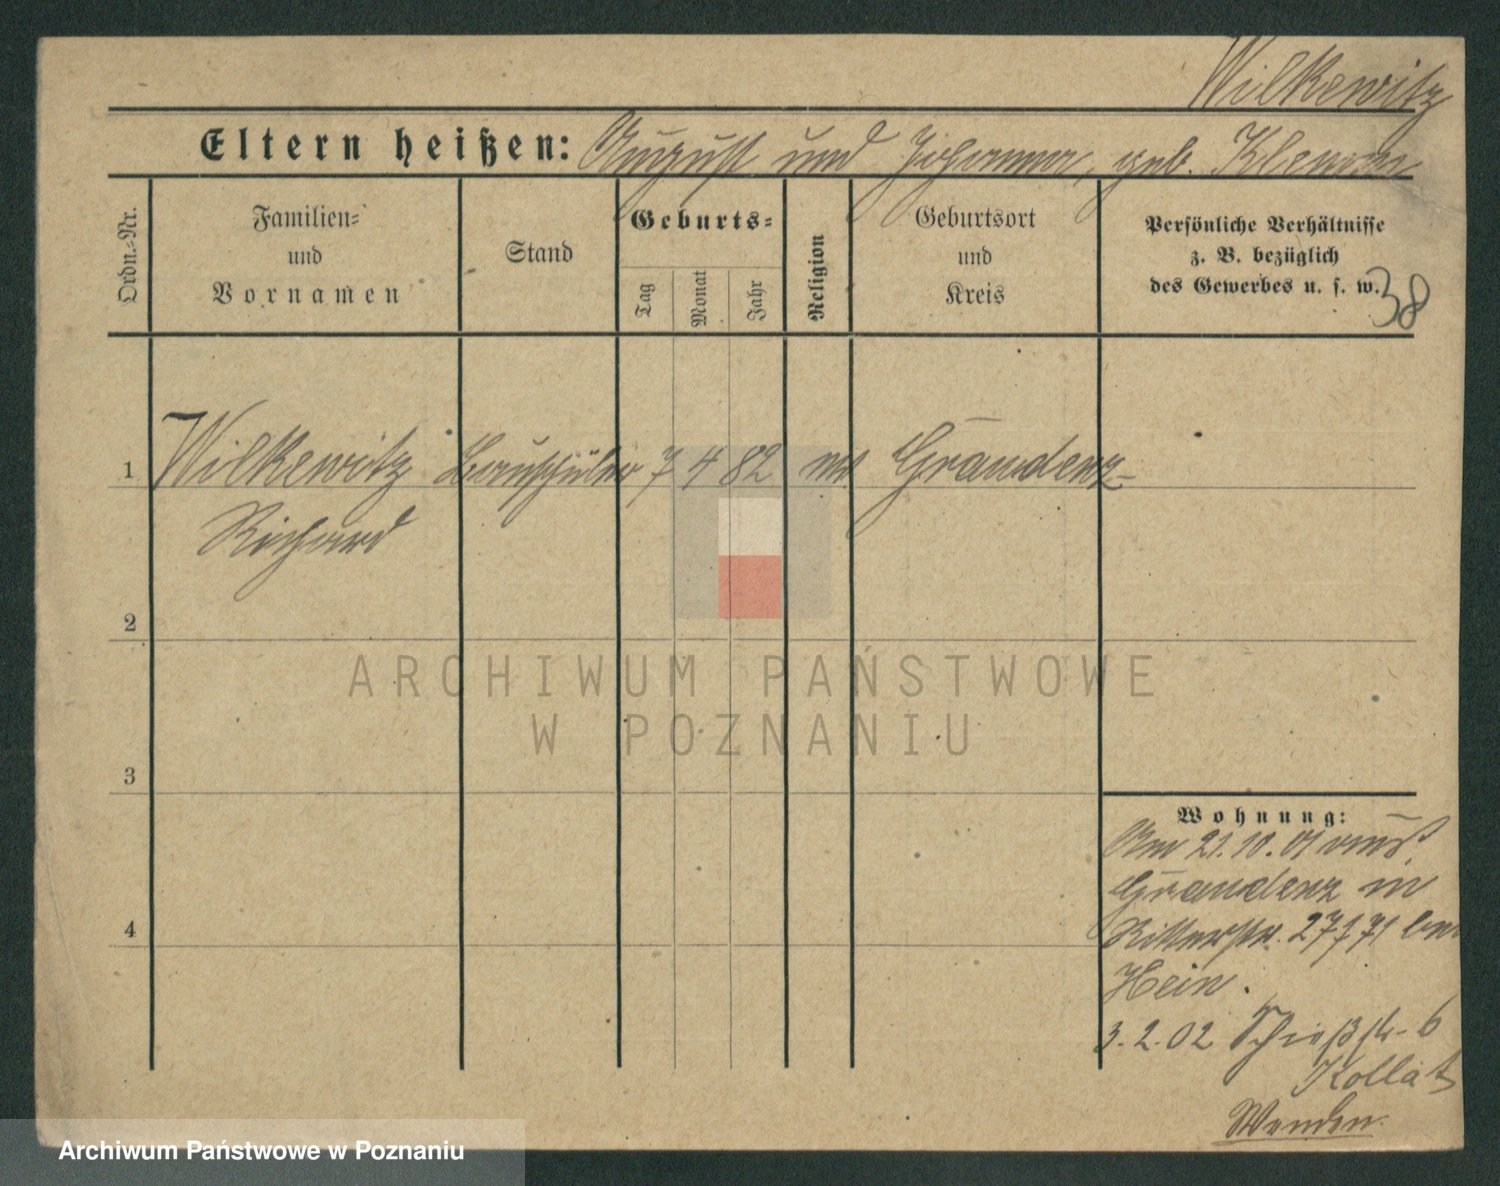 Wilkewitz
Eltern heißen: August und Johanna, geb. Klemm
Ordn.=Nr.
Familien=
und
Vornamen
Stand
Geburts=
Tag
Monat
Jahr
Religion
Geburtsort
und
Kreis
Persönliche Verhältnisse
z. B. bezüglich
des Gewerbes u. s. w.
38
1 Wilkewitz Bauschüler 7 4 82 ev Graudenz
Richard
2
3
4
Wohnung:
Am 21.10.01 aus
Graudenz in
Ritterstr. 27 71 bei
Hein.
3.2.02 Schießstr. 6
Kollat
Wenden
ARCHIWUM PAŃSTWOWE
W POZNANIU
Archiwum Państwowe w Poznaniu